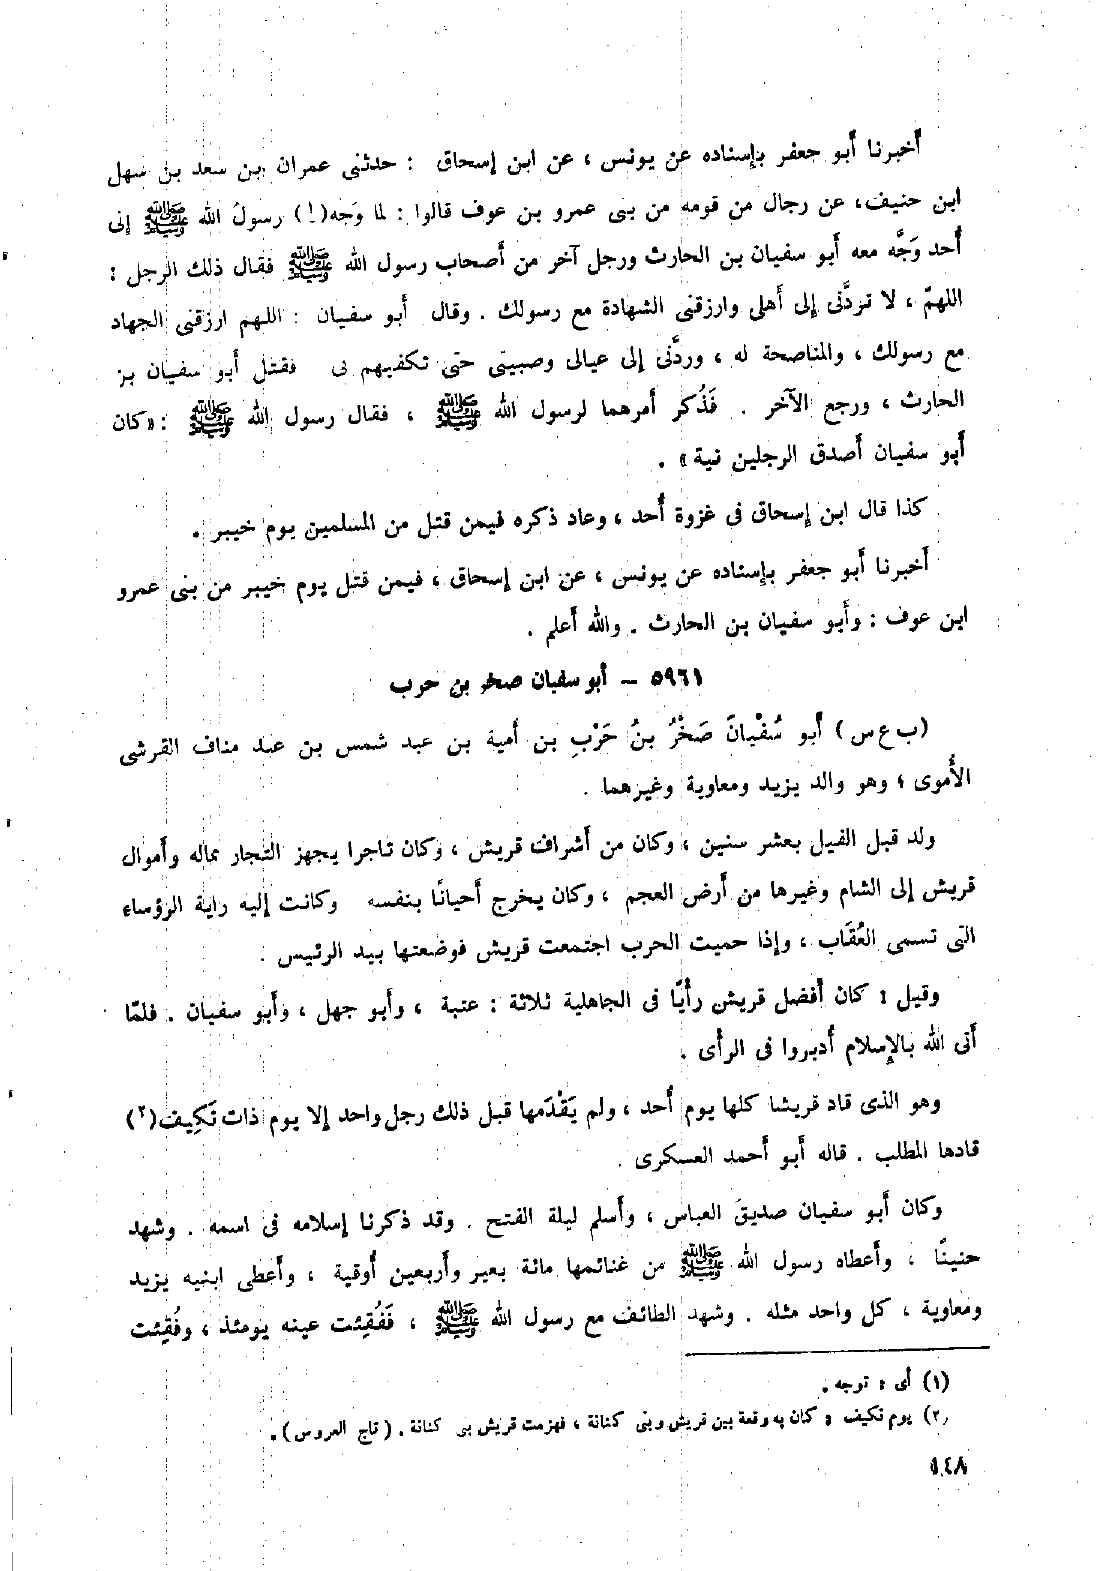 أخبرنا أبو جعفر بإسناده عن يونس ، عن ابن إسحاق : حدثنى عمران بن سعد بن سهل
ابن حنيف، عن رجال من قومه من بنى عمرو بن عوف قالوا : لما وَجه(١) رسولُ الله ﷺ إلى
أُحد وَجَّه معه أبو سفيان بن الحارث ورجل آخر من أصحاب رسول الله ﷺ فقال ذلك الرجل :
اللهمّ ، لا تردَّنى إلى أهلى وارزقنى الشهادة مع رسولك . وقال أبو سفيان : اللهم ارزقنى الجهاد
مع رسولك ، والمناصحة له ، وردَّنى إلى عيالى وصبيتى حتى تكفيهم بى فقتل أبو سفيان بن
الحارث ، ورجع الآخر . فَذُكر أمرهما لرسول الله ﷺ ، فقال رسول الله ﷺ : «كان
أبو سفيان أصدق الرجلين نية» .
كذا قال ابن إسحاق فى غزوة أُحد ، وعاد ذكره فيمن قتل من المسلمين يوم خيبر .
أخبرنا أبو جعفر بإسناده عن يونس ، عن ابن إسحاق ، فيمن قتل يوم خيبر من بنى عمرو
ابن عوف : وأبو سفيان بن الحارث . والله أعلم .
٥٩٦١ – أبو سفيان صخر بن حرب
(ب ع س) أبو سُفْيانَ صَخْرُ بنُ حَرْبِ بن أمية بن عبد شمس بن عبد مناف القرشى
الأُموى ؛ وهو والد يزيد ومعاوية وغيرهما .
ولد قبل الفيل بعشر سنين ، وكان من أشراف قريش ، وكان تاجرا يجهز التجار بماله وأموال
قريش إلى الشام وغيرها من أرض العجم ، وكان يخرج أحيانًا بنفسه وكانت إليه راية الرؤساء
التى تسمى العُقَاب ، وإذا حميت الحرب اجتمعت قريش فوضعتها بيد الرئيس .
وقيل : كان أفضل قريش رأيًا فى الجاهلية ثلاثة : عتبة ، وأبو جهل ، وأبو سفيان . فلمّا
أتى الله بالإسلام أدبروا فى الرأى .
وهو الذى قاد قريشا كلها يوم أُحد ، ولم يَقْدَمها قبل ذلك رجل واحد إلا يوم ذات نَكِيف(٢)
قادها المطلب . قاله أبو أحمد العسكرى .
وكان أبو سفيان صديقَ العباس ، وأسلم ليلة الفتح . وقد ذكرنا إسلامه فى اسمه . وشهد
حنينًا ، وأعطاه رسول الله ﷺ من غنائمها مائة بعير وأربعين أُوقية ، وأعطى ابنيه يزيد
ومعاوية ، كل واحد مثله . وشهد الطائف مع رسول الله ﷺ ، فَفُقِئت عينه يومئذ ، وفُقِئت
(١) أى : توجه .
(٢) يوم نكيف : كان به وقعة بين قريش وبنى كنانة ، فهزمت قريش بنى كنانة . (تاج العروس) .
١٤٨